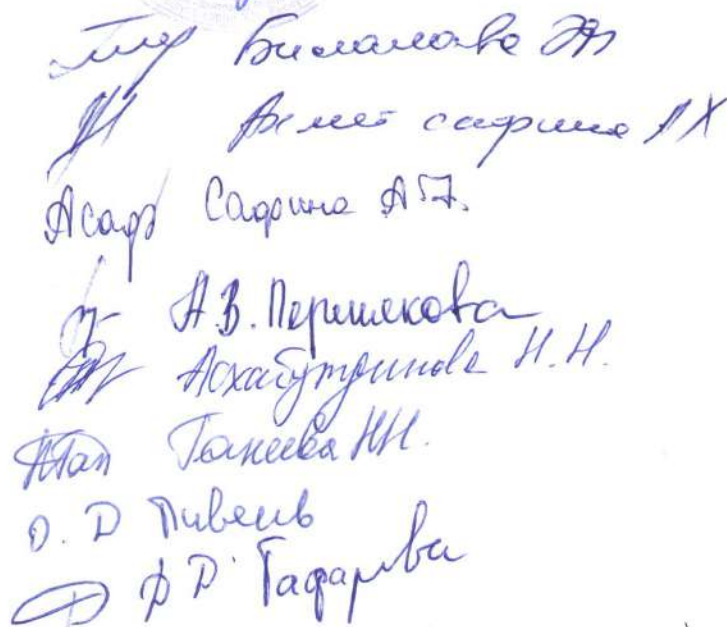 Билалова ЭЯ
Ахметсафина ЛХ
Асаф Сафина А.Я.
А.В. Пермякова
Асхабутдинова Н.Н.
Ганеева НН.
О. Д Пивень
Д Д. Гафарова